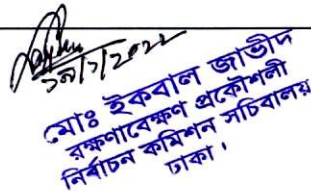 মোঃ ইকবাল জাভীদ
রক্ষণাবেক্ষণ প্রকৌশলী
নির্বাচন কমিশন সচিবালয়
ঢাকা।